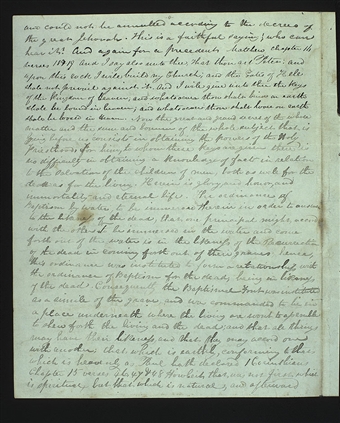 and could not be annulled according to the decrees of
the great Jehovah. This is a faithful saying, who can
hear it? And again for a precedent Matthew chapter 16
verses 18,19 And I say also unto thee that thou art Peter: and
upon this rock I will build my Church; and the Gates of Hell
shall not prevail against it. And I will give unto thee the Keys
of the Kingdom of heaven; and whatsoever thou shalt bind on earth
shall be bound in heaven; and whatsoever thou shalt loose on earth
shall be loosed in heaven. Now the great and grand secret of the whole
matter and the sum and bonum of the whole subject that is
lying before us consists in obtaining the powers of the Holy
Priesthood. For him to whom these keys are given there is no
difficulty in obtaining a knowledge of facts in relation
to the salvation of the children of men, both as well for the
dead as for the living. Herein is glory and honor, and
immortality and eternal life. The ordinance of
baptism by water, to be immersed therein in order to answer
to the likeness of the dead, that one principle might accord
with the other. To be immersed in the water and come
forth out of the water is in the likeness of the resurrection
of the dead in coming forth out of their graves; hence,
this ordinance was instituted to form a relationship with
the ordinance of Baptism for the dead, being in likeness
of the dead. Consequently the Baptismal Font was instituted
as a simile of the grave, and was commanded to be in
a place underneath where the living are wont to assemble
to shew forth the living and the dead; and that all things
may have their likeness, and that they may accord one
with another; that which is earthly, conforming to that
which is heavenly, as Paul hath declared 1 Corinthians
chapter 15 verses 46, 47 & 48 Howbeit that was not first which
is spiritual, but that which is natural; and afterward